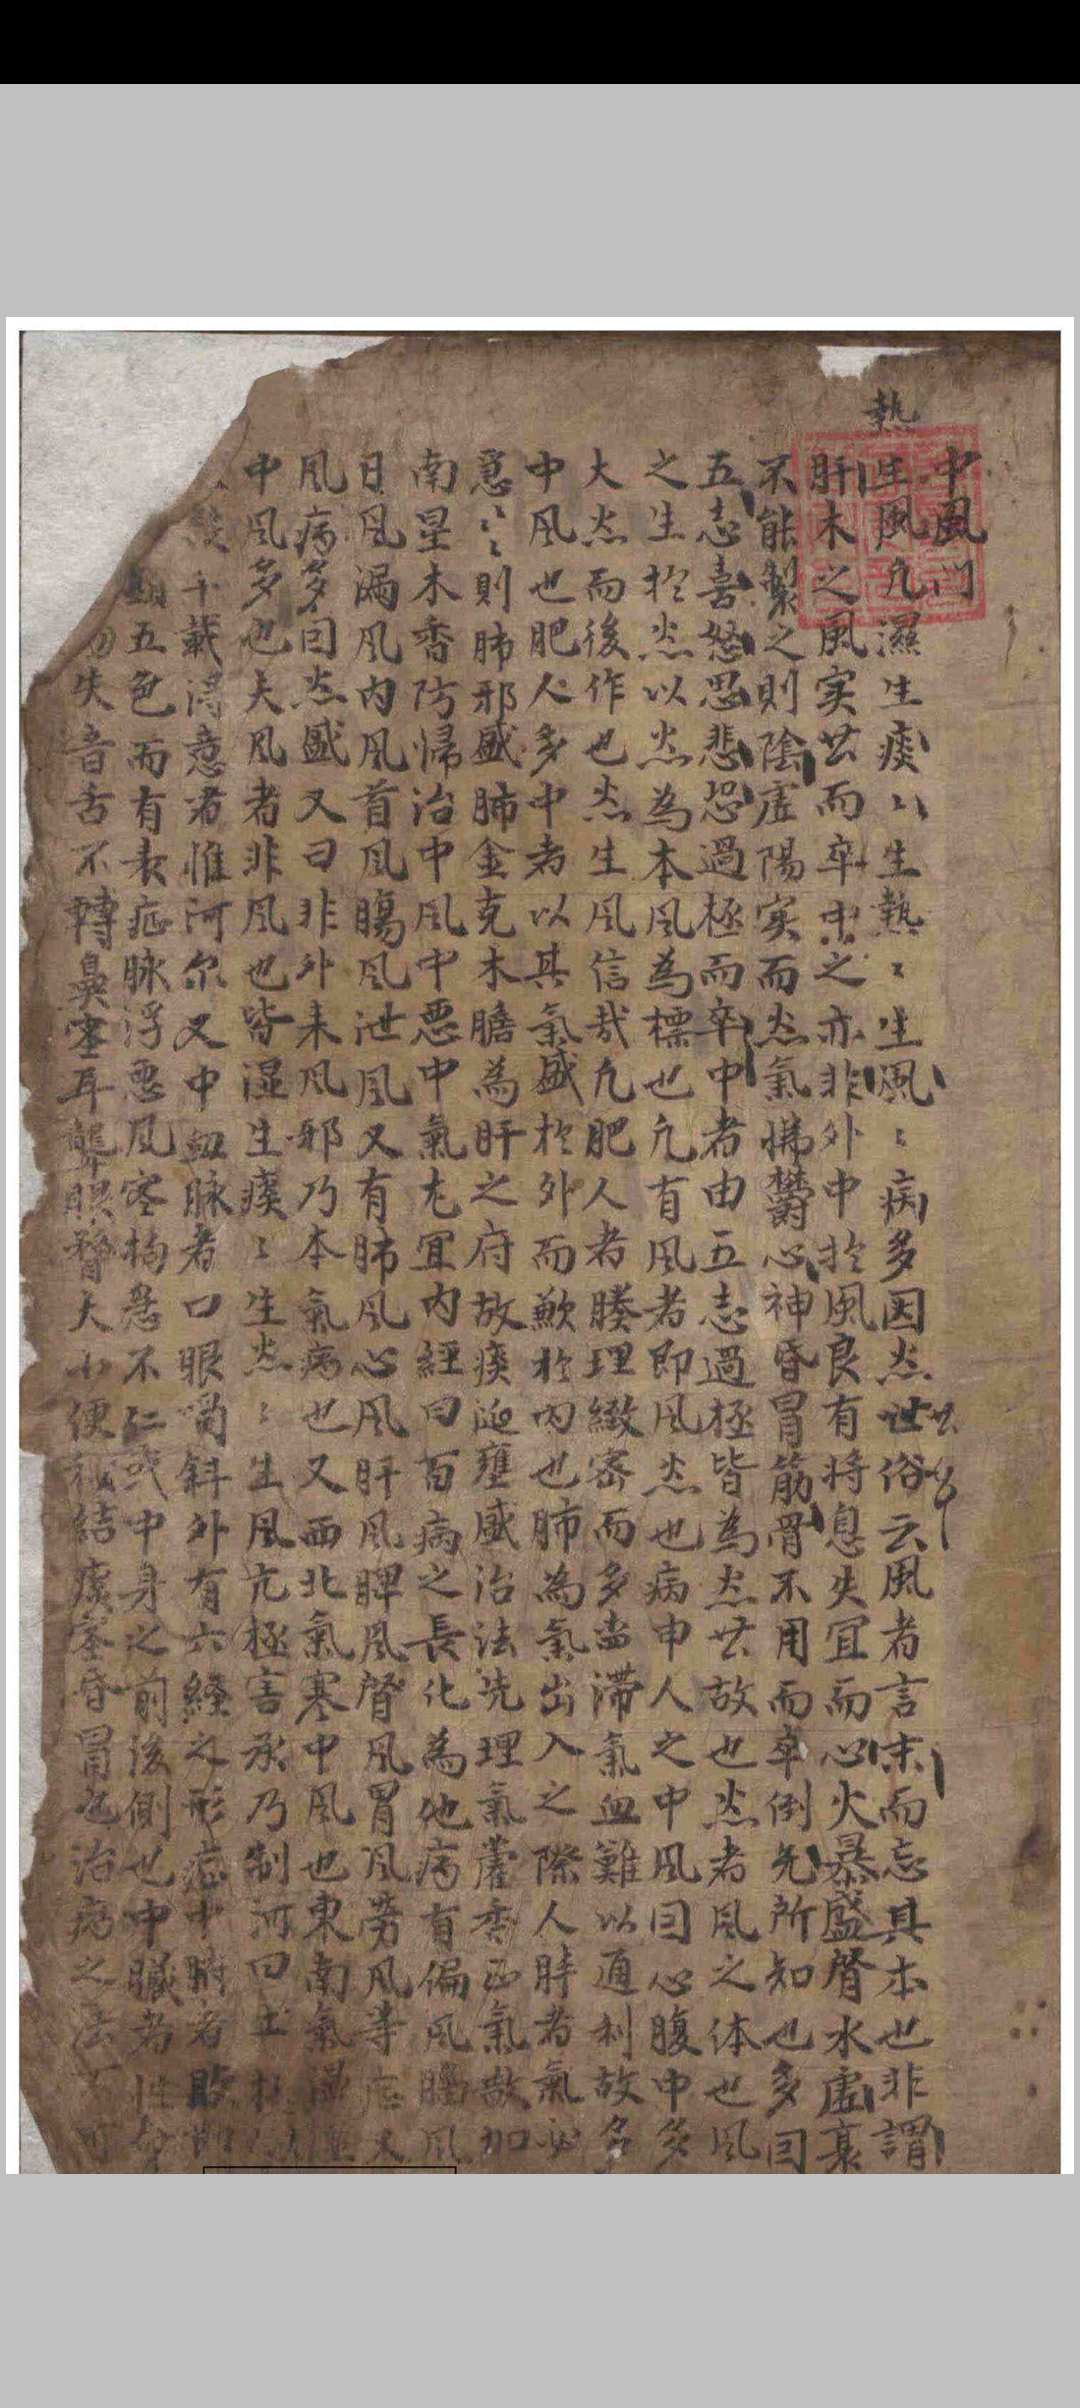 中風門
熱生風凢濕生痰〻生熱〻生風〻病多因炁世俗云風者言末而忘其本也非謂
肝木之風实㠯而卒中之亦非外中扵風良有將息失宜而心火暴盛腎水虛衰
不能製之則陰虛陽实而炁氣怫欝心神昏冒筋骨不用而卒倒无所知也多囙
五志喜怒思悲恐過極而卒中者由五志過極皆為炁㠯故也炁者風之体也風
之生扵炁以炁為本風為標也凢有風者即風炁也病中人之中風囙心腹中多
大炁而後作也炁生風信哉凢肥人者腠理緻密而多欝滯氣血難以通利故多
中風也肥人多中者以其氣盛扵外而歉扵內也肺為氣出入之際人肥者氣必
急〻則肺邪盛肺金克木膽為肝之府故痰涎壅盛治法先理氣藿香正氣散加
南星木香防帰治中風中悪中氣尤宜內經曰百病之長化為他病有偏風風
日風漏風內風首風腸風泄風又有肺風心風肝風脾風腎風胃風劳風等症又
風病多囙炁盛又曰非外来風邪乃本氣病也又西北氣寒中風也東南氣濕
中風多也夫風者非風也皆濕生痰〻生炁〻生風亢極害承乃制河曰土
千載得意者惟河尔又中血脉者口眼喎斜外有六經之形症中腑者
五色而有表症脉浮悪風寒拘急不仁或中身之前後側也中臓者性
失音舌不轉鼻塞耳聾瞑瞀大小便秘結痰塞昏冒也治病之法可